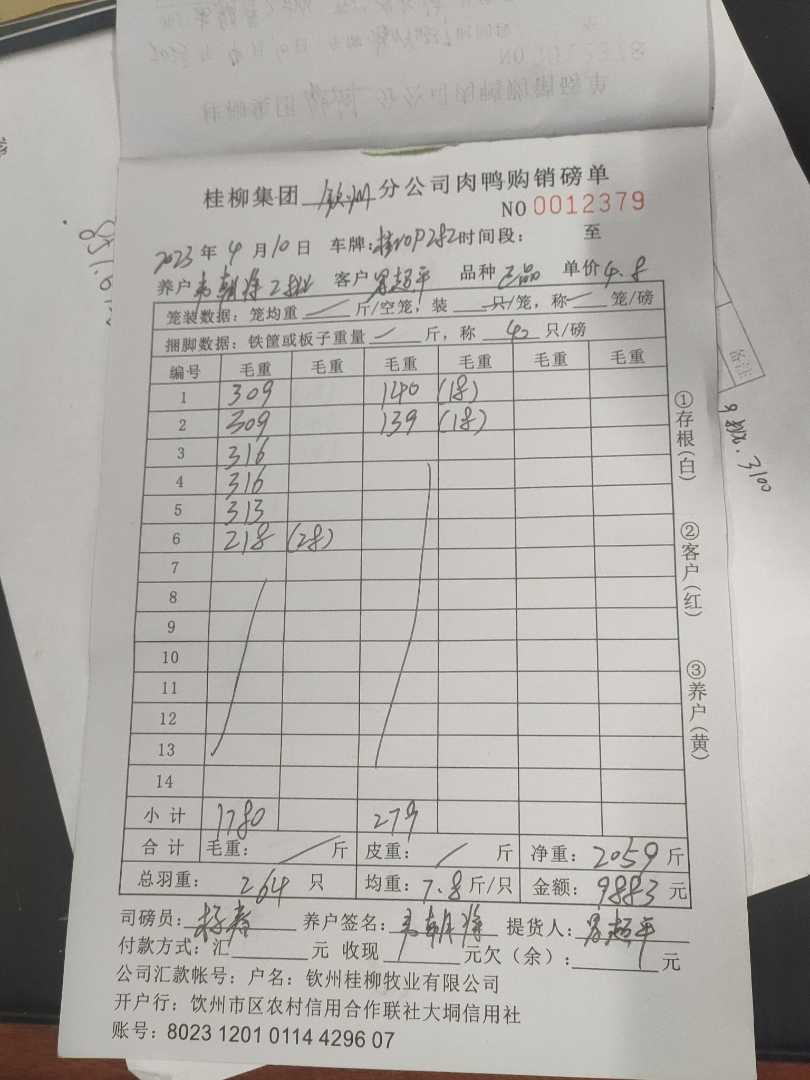 桂柳集团 钦州 分公司肉鸭购销磅单
NO 0012379
2023 年 4 月 10 日 车牌: 时间段: 至
养户 韦朝 客户 罗超平 品种 正品 单价 4.8
笼装数据: 笼均重 / 斤/空笼, 装 只/笼, 称 / 笼/磅
捆脚数据: 铁筐或板子重量 / 斤, 称 40 只/磅
编号 毛重 毛重 毛重 毛重 毛重 毛重
1 309 140 (18)
2 309 139 (18)
3 316
4 316
5 313
6 218 (28)
7
8
9
10
11
12
13
14
小计 1780 279
合计 毛重: / 斤 皮重: / 斤 净重: 2059 斤
总羽重: 264 只 均重: 7.8 斤/只 金额: 9883 元
司磅员: 养户签名: 韦朝 提货人: 罗超平
付款方式: 汇 元 收现 元欠(余): 元
公司汇款帐号: 户名: 钦州桂柳牧业有限公司
开户行: 饮州市区农村信用合作联社大垌信用社
账号: 8023 1201 0114 4296 07
①存根(白)
②客户(红)
③养户(黄)
备注
3100